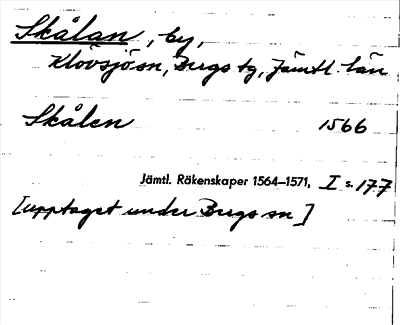 Skålan, by,
Klövsjö sn, Bergs tg, Jämtl. län
Skålen 1566
Jämtl. Räkenskaper 1564–1571, I s. 177
[upptaget under Bergs sn]